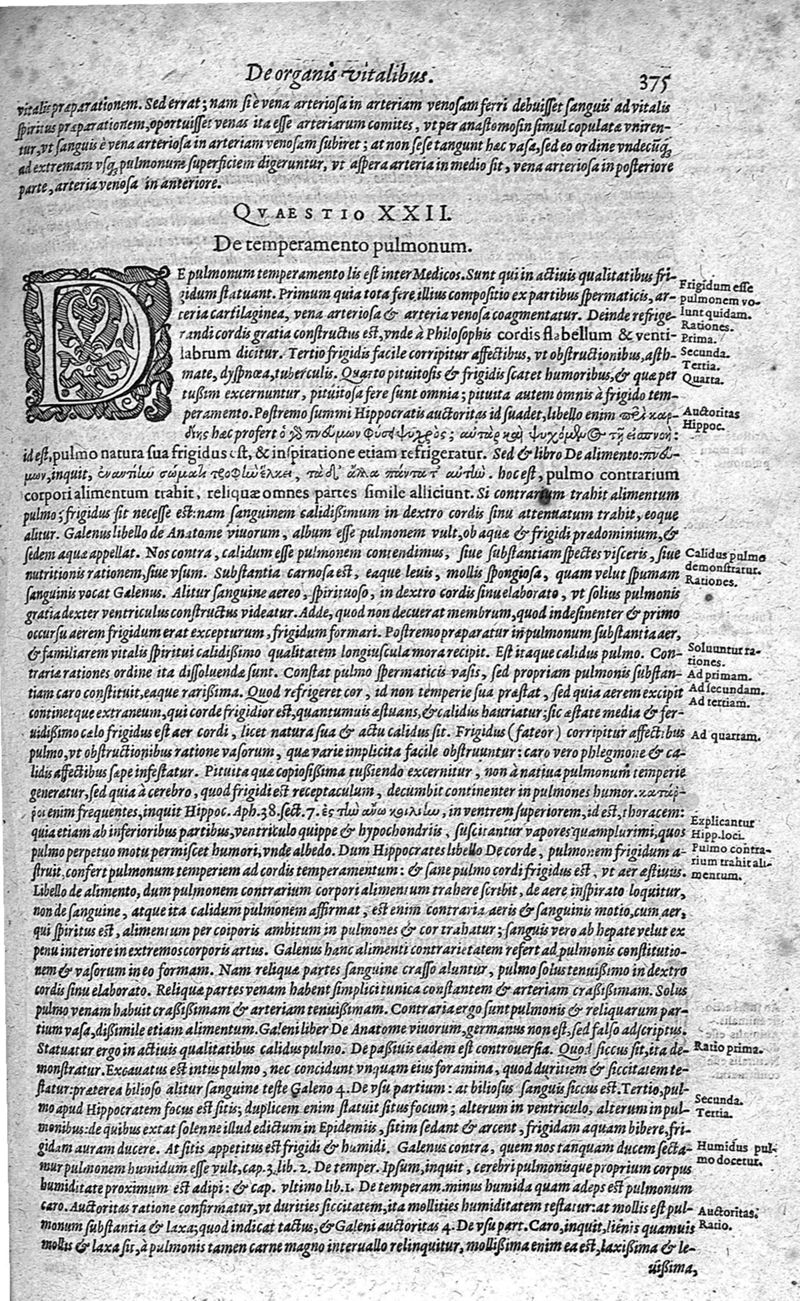 De organis vitalibus. 375
vitalis præparationem. Sed errat; nam si è vena arteriosa in arteriam venosam ferri debuisset sanguis ad vitalis
spiritus præparationem, oportuisset venas ita esse arteriarum comites, vt per anastomosin simul copulatæ vniren-
tur, vt sanguis è vena arteriosa in arteriam venosam subiret; at non sese tangunt hæc vasa, sed eo ordine vndecūq;
ad extremam vsq; pulmonum superficiem digeruntur, vt aspera arteria in medio sit, vena arteriosa in posteriore
parte, arteria venosa in anteriore.
QVAESTIO XXII.
De temperamento pulmonum.
DE pulmonum temperamento lis est inter Medicos. Sunt qui in actiuis qualitatibus fri-
gidum statuant. Primum quia tota fere illius compositio ex partibus spermaticis, ar-
teria cartilaginea, vena arteriosa & arteria venosa coagmentatur. Deinde refrige-
randi cordis gratia constructus est, vnde à Philosophis cordis flabellum & venti-
labrum dicitur. Tertio frigidis facile corripitur affectibus, vt obstructionibus, asth-
mate, dyspnœa, tuberculis. Quarto pituitosis & frigidis scatet humoribus, & quæ per
tussim excernuntur, pituitosa fere sunt omnia; pituita autem omnis à frigido tem-
peramento. Postremo summi Hippocratis auctoritas id suadet, libello enim περὶ καρ-
δίης hæc profert ὁ πνεύμων φύσει ψυχρός; αὐτὰρ καὶ ψυχόμενος τῇ εἰσπνοῇ:
id est, pulmo natura sua frigidus est, & inspiratione etiam refrigeratur. Sed & libro De alimento: πνεύ-
μων, inquit, ἐναντίην σώματι τροφὴν ἕλκει, τὰ δ' ἄλλα πάντα τ' αὐτήν. hoc est, pulmo contrarium
corpori alimentum trahit, reliquæ omnes partes simile alliciunt. Si contrarium trahit alimentum
pulmo; frigidus sit necesse est: nam sanguinem calidissimum in dextro cordis sinu attenuatum trahit, eoque
alitur. Galenus libello de Anatome viuorum, album esse pulmonem vult, ob aquæ & frigidi prædominium, &
sedem aquæ appellat. Nos contra, calidum esse pulmonem contendimus, siue substantiam spectes visceris, siue
nutritionis rationem, siue vsum. Substantia carnosa est, eaque leuis, mollis spongiosa, quam velut spumam
sanguinis vocat Galenus. Alitur sanguine aereo, spirituoso, in dextro cordis sinu elaborato, vt solius pulmonis
gratia dexter ventriculus constructus videatur. Adde, quod non decuerat membrum, quod indesinenter & primo
occursu aerem frigidum erat excepturum, frigidum formari. Postremo præparatur in pulmonum substantia aer,
& familiarem vitalis spiritui calidissimo qualitatem longiuscula mora recipit. Est itaque calidus pulmo. Con-
trariæ rationes ordine ita dissoluendæ sunt. Constat pulmo spermaticis vasis, sed propriam pulmonis substan-
tiam caro constituit, eaque rarissima. Quod refrigeret cor, id non temperie sua præstat, sed quia aerem excipit
continetque extraneum, qui corde frigidior est, quantumuis æstuans, & calidus hauriatur: sic æstate media & fer-
uidissimo cælo frigidus est aer cordi, licet natura sua & actu calidus sit. Frigidus (fateor) corripitur affectibus
pulmo, vt obstructionibus ratione vasorum, quæ varie implicita facile obstruuntur: caro vero phlegmone & ca-
lidis affectibus sæpe infestatur. Pituita quæ copiosissima tussiendo excernitur, non à natiua pulmonum temperie
generatur, sed quia à cerebro, quod frigidi est receptaculum, decumbit continenter in pulmones humor. κατάρ-
ροι enim frequentes, inquit Hippoc. Aph. 38. sect. 7. ἐς τὴν ἄνω κοιλίην, in ventrem superiorem, id est, thoracem:
quia etiam ab inferioribus partibus, ventriculo quippe & hypochondriis, suscitantur vapores quamplurimi, quos
pulmo perpetuo motu permiscet humori, vnde albedo. Dum Hippocrates libello De corde, pulmonem frigidum a-
struit, confert pulmonum temperiem ad cordis temperamentum: & sane pulmo cordi frigidus est, vt aer æstiuus.
Libello de alimento, dum pulmonem contrarium corpori alimentum trahere scribit, de aere inspirato loquitur,
non de sanguine, atque ita calidum pulmonem affirmat, est enim contraria aeris & sanguinis motio, cum aer,
qui spiritus est, alimentum per corporis ambitum in pulmones & cor trahatur; sanguis vero ab hepate velut ex
penu interiore in extremos corporis artus. Galenus hanc alimenti contrarietatem refert ad pulmonis constitutio-
nem & vasorum in eo formam. Nam reliquæ partes sanguine crasso aluntur, pulmo solus tenuissimo in dextro
cordis sinu elaborato. Reliquæ partes venam habent simplici tunica constantem & arteriam crassissimam. Solus
pulmo venam habuit crassissimam & arteriam tenuissimam. Contraria ergo sunt pulmonis & reliquarum par-
tium vasa, dissimile etiam alimentum. Galeni liber De Anatome viuorum, germanus non est, sed falso adscriptus.
Statuatur ergo in actiuis qualitatibus calidus pulmo. De passiuis eadem est controuersia. Quod siccus sit, ita de-
monstratur. Excauatus est intus pulmo, nec concidunt vnquam eius foramina, quod duritiem & siccitatem te-
statur: præterea bilioso alitur sanguine teste Galeno 4. De vsu partium: at biliosus sanguis siccus est. Tertio, pul-
mo apud Hippocratem focus est sitis; duplicem enim statuit situs focum; alterum in ventriculo, alterum in pul-
monibus: de quibus extat solenne illud edictum in Epidemiis, sitim sedant & arcent, frigidam aquam bibere, fri-
gidam auram ducere. At sitis appetitus est frigidi & humidi. Galenus contra, quem nos tanquam ducem secta-
mur pulmonem humidum esse vult, cap. 3. lib. 2. De temper. Ipsum, inquit, cerebri pulmonisque proprium corpus
humiditate proximum est adipi: & cap. vltimo lib. 1. De temperam. minus humida quam adeps est pulmonum
caro. Auctoritas ratione confirmatur, vt durities siccitatem, ita mollities humiditatem testatur: at mollis est pul-
monum substantia & laxa; quod indicat tactus, & Galeni auctoritas 4. De vsu part. Caro, inquit, lienis quamuis
mollis & laxa sit, à pulmonis tamen carne magno interuallo relinquitur, mollissima enim ea est, laxissima & le-
uissima,
Frigidum esse
pulmonem vo-
lunt quidam.
Rationes.
Prima.
Secunda.
Tertia.
Quarta.
Auctoritas
Hippoc.
Calidus pulmo
demonstratur.
Rationes.
Soluuntur ra-
tiones.
Ad primam.
Ad secundam.
Ad tertiam.
Ad quartam.
Explicantur
Hipp. loci.
Pulmo contra-
rium trahit ali-
mentum.
Ratio prima.
Secunda.
Tertia.
Humidus pul-
mo docetur.
Auctoritas.
Ratio.